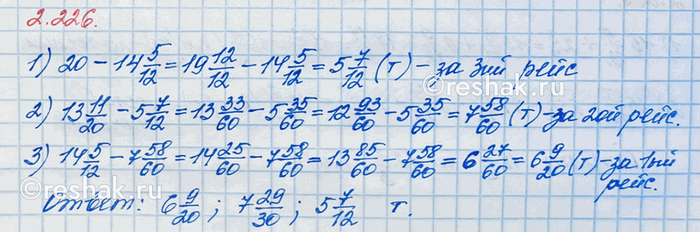 2.226.
1) 20 - 14 5/12 = 19 12/12 - 14 5/12 = 5 7/12 (т) - за 3ий рейс
2) 13 11/20 - 5 7/12 = 13 33/60 - 5 35/60 = 12 93/60 - 5 35/60 = 7 58/60 (т) - за 2ой рейс.
3) 14 5/12 - 7 58/60 = 14 25/60 - 7 58/60 = 13 85/60 - 7 58/60 = 6 27/60 = 6 9/20 (т) - за 1ый
рейс.
Ответ: 6 9/20 ; 7 29/30 ; 5 7/12 т.